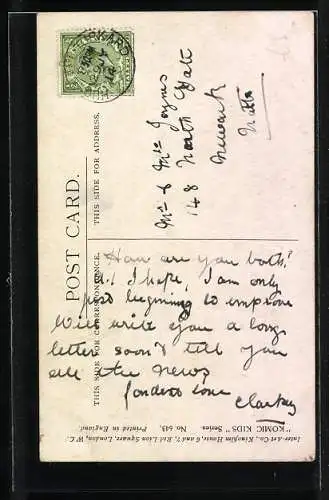 POST CARD.
THIS SIDE FOR ADDRESS.
THIS SIDE FOR CORRESPONDENCE.
Mr & Mrs Joynes
148 North Gate
Newark
Notts
How are you both?
I hope, I am only
just beginning to emprove
Will write you a long
letter soon & tell you
all the news
fondest love
"KOMIC KIDS" Series. No. 643. Printed in England.
Inter-Art Co., Kingjim House, 6 and 7, Red Lion Square, London, W.C.